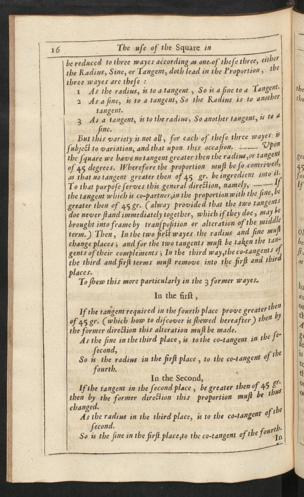 16 The use of the Square in
be reduced to three wayes according as one of these three, either
the Radius, Sine, or Tangent, doth lead in the Proportion, the
three wayes are these:
1 As the radius, is to a tangent, So is a sine to a Tangent.
2 As a sine, is to a tangent, So the Radius is to another
tangent.
3 As a tangent, is to the radius, So another tangent, is to a
sine.
But this variety is not all, for each of these three wayes is
subject to variation, and that upon this occasion. —— Upon
the square we have no tangent greater then the radius, or tangent
of 45 degrees. Wherefore the proportion must be so contrived,
as that no tangent greater of 45 gr. be ingredient into it.
To that purpose serves this general direction, namely, —— If
the tangent which is co-partner, in the proportion with the sine, be
greater then of 45 gr. (alway provided that the two tangents
doe never stand immediately together, which if they doe, may be
brought into frame by transposition or alteration of the middle
term.) Then, In the two first wayes the radius and sine must
change places; and for the two tangents must be taken the tan-
gents of their complements; In the third way, the co-tangents of
the third and first terms must remove into the first and third
places.
To shew this more particularly in the 3 former wayes.
In the first,
If the tangent required in the fourth place prove greater then
of 45 gr. (which how to discover is shewed hereafter) then by
the former direction this alteration must be made.
As the sine in the third place, is to the co-tangent in the se-
cond,
So is the radius in the first place, to the co-tangent of the
fourth.
In the Second,
If the tangent in the second place, be greater then of 45 gr.
then by the former direction this proportion must be thus
changed.
As the radius in the third place, is to the co-tangent of the
second.
So is the sine in the first place, to the co-tangent of the fourth.
In